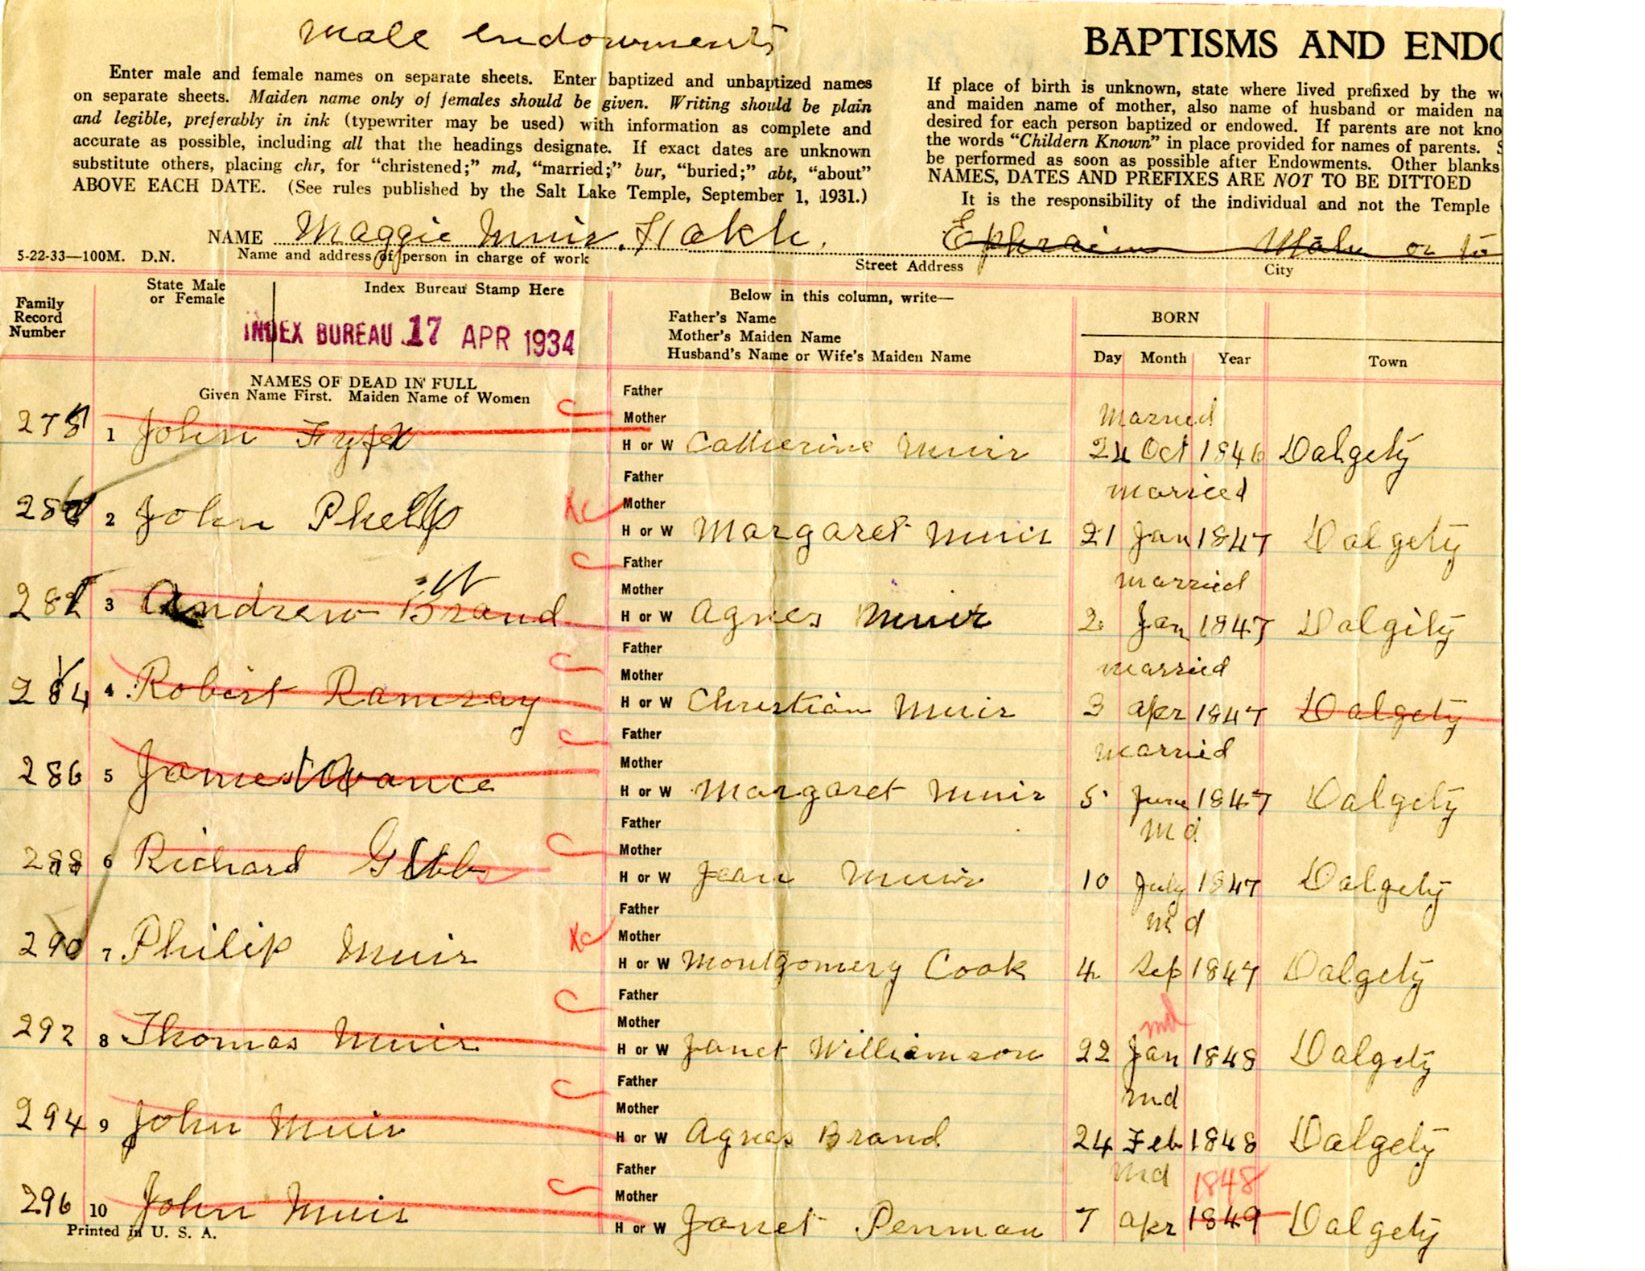 Male endowments
BAPTISMS AND ENDO
Enter male and female names on separate sheets. Enter baptized and unbaptized names
on separate sheets. Maiden name only of females should be given. Writing should be plain
and legible, preferably in ink (typewriter may be used) with information as complete and
accurate as possible, including all that the headings designate. If exact dates are unknown
substitute others, placing chr, for “christened;” md, “married;” bur, “buried;” abt, “about”
ABOVE EACH DATE. (See rules published by the Salt Lake Temple, September 1, 1931.)
If place of birth is unknown, state where lived prefixed by the w
and maiden name of mother, also name of husband or maiden na
desired for each person baptized or endowed. If parents are not kno
the words “Childern Known” in place provided for names of parents. S
be performed as soon as possible after Endowments. Other blanks
NAMES, DATES AND PREFIXES ARE NOT TO BE DITTOED
It is the responsibility of the individual and not the Temple
NAME Maggie Muir Ephraim Utah or to
5-22-33—100M. D.N. Name and address of person in charge of work Street Address City
Family Record Number
State Male or Female
Index Bureau Stamp Here
INDEX BUREAU 17 APR 1934
Below in this column, write—
Father's Name
Mother's Maiden Name
Husband's Name or Wife's Maiden Name
BORN
Day Month Year Town
NAMES OF DEAD IN FULL
Given Name First. Maiden Name of Women
Father
Mother Married
1 John H or W Catherine Muir 24 Oct 1846 Dalgety
Father
Mother married
2 John Phelp H or W Margaret Muir 21 Jan 1847 Dalgety
Father
Mother married
3 Andrew Brand H or W Agnes Muir 2 Jan 1847 Dalgity
Father
Mother married
284 4 Robert Ramsay H or W Christian Muir 3 apr 1847 Dalgety
Father
Mother married
286 5 James H or W Margaret Muir 5 June 1847 Dalgety
Father
Mother md
288 6 Richard Gibb H or W Jean Muir 10 July 1847 Dalgety
Father
Mother md
290 7 Philip Muir H or W Montgomery Cook 4 Sep 1847 Dalgety
Father
Mother md
292 8 Thomas Muir H or W Janet Williamson 22 Jan 1848 Dalgety
Father
Mother md
294 9 John Muir H or W Agnes Brand 24 Feb 1848 Dalgety
Father
Mother md 1848
296 10 John Muir H or W Janet Penman 7 apr 1849 Dalgety
Printed in U. S. A.